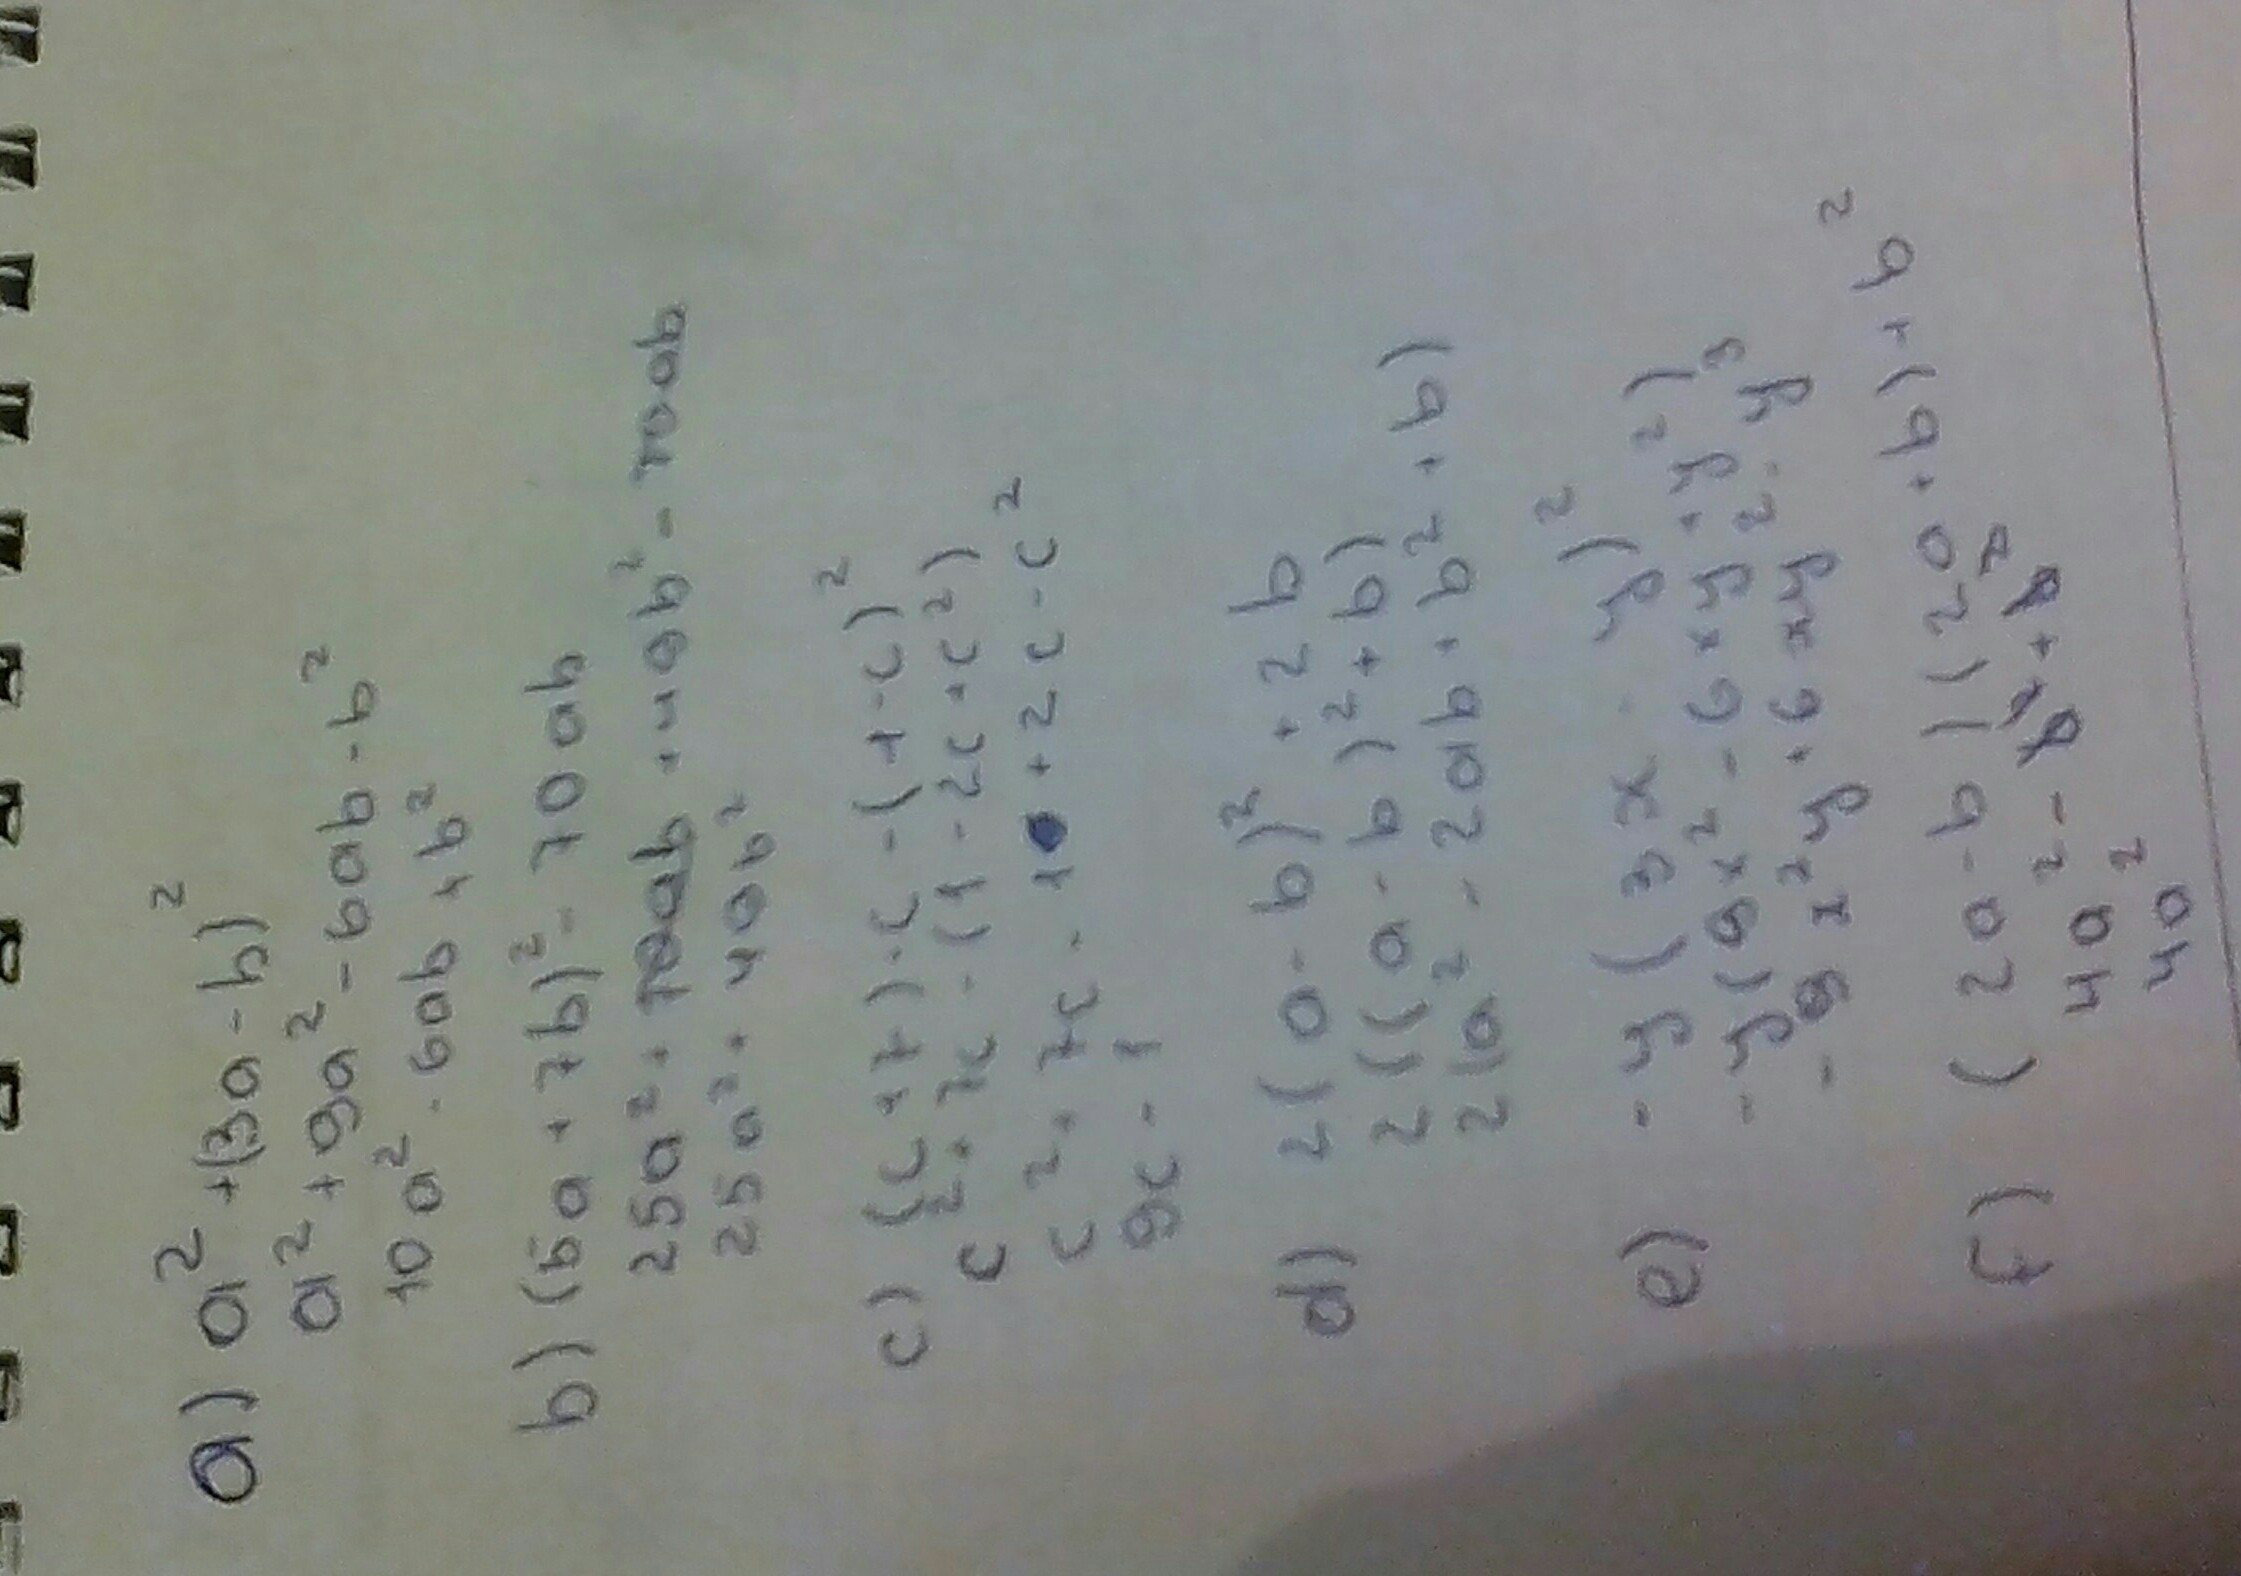 a) a² + (3a - b)²
a² + 9a² - 6ab - b²
10a² - 6ab + b²
b) (5a + 7b)² - 70ab
25a² + 70ab + 49b² - 70ab
25a² + 49b²
c) (c + 7) · c - (1 - c)²
c² + 7c - (1 - 2c + c²)
c² + 7c - 1 + 2c - c²
9c - 1
d) 2(a - b)² + 2b
2((a - b)² + b)
2(a² - 2ab + b² + b)
e) -y(3x - y)²
-y(9x² - 6xy + y²)
-9x²y + 6xy² - y³
f) (2a - b)(2a + b) + b²
4a² - b² + b²
4a²